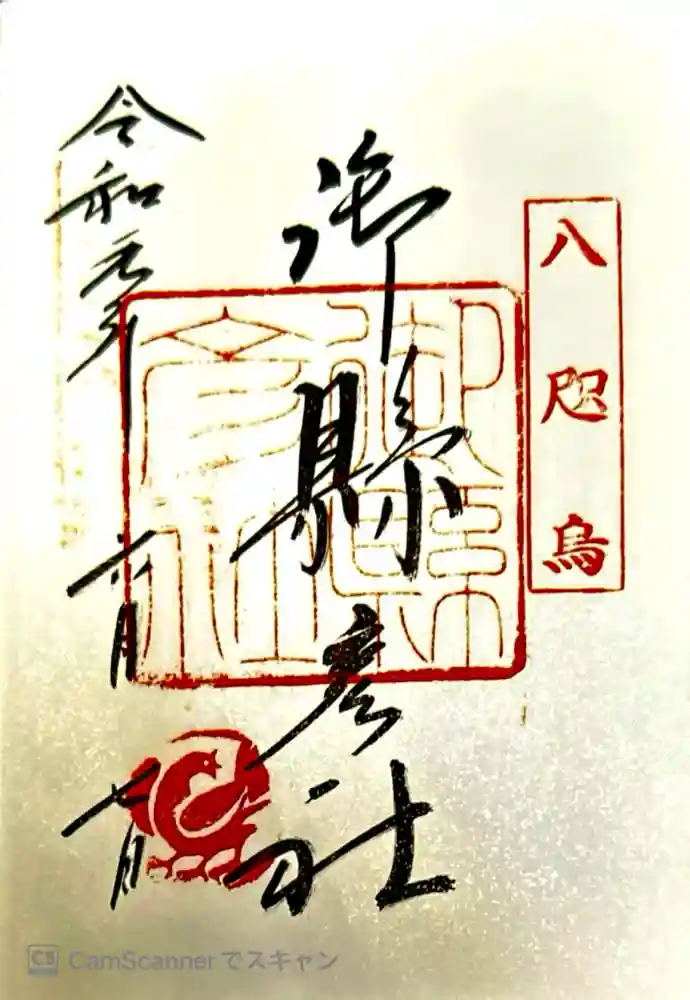 八咫烏
御縣彦社
御縣彦社
令和元年
六月
七日
CS CamScannerでスキャン